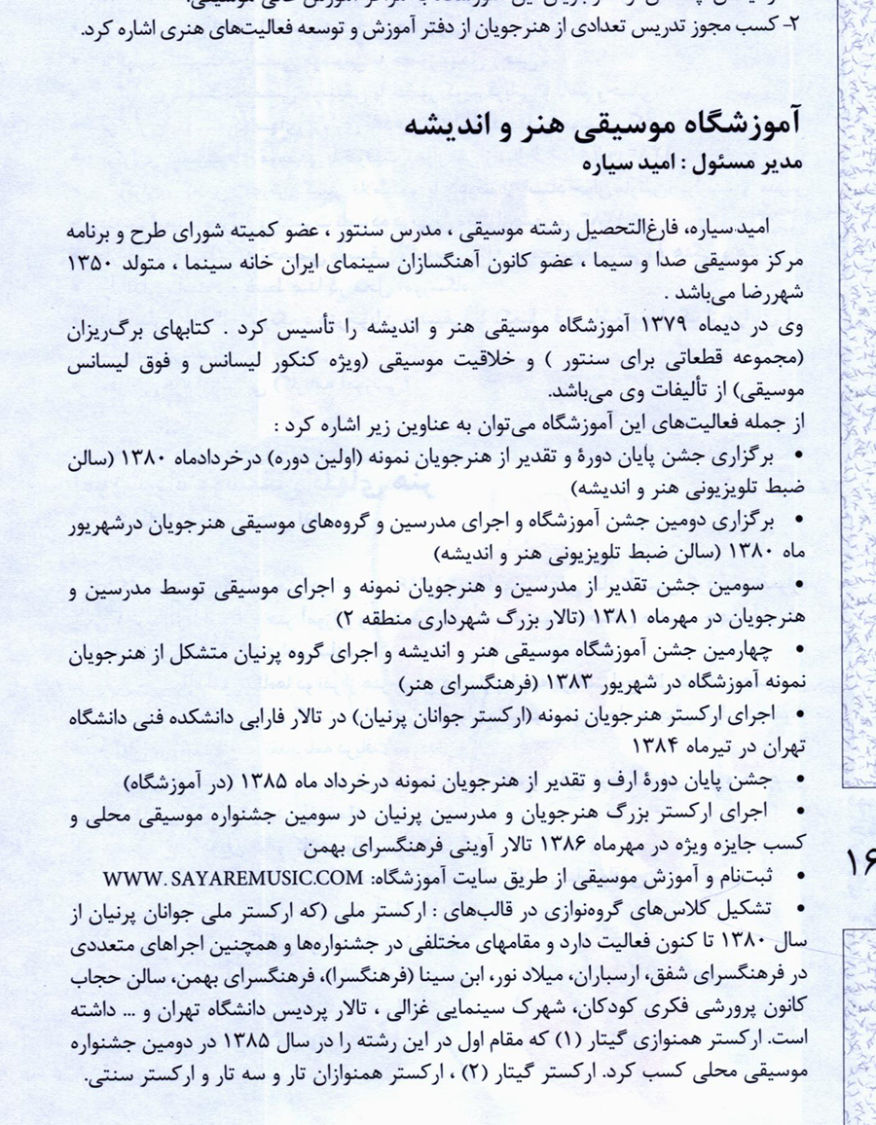 ۲- کسب مجوز تدریس تعدادی از هنرجویان از دفتر آموزش و توسعه فعالیت‌های هنری اشاره کرد.
آموزشگاه موسیقی هنر و اندیشه
مدیر مسئول : امید سیاره
امید سیاره، فارغ‌التحصیل رشته موسیقی ، مدرس سنتور ، عضو کمیته شورای طرح و برنامه
مرکز موسیقی صدا و سیما ، عضو کانون آهنگسازان سینمای ایران خانه سینما ، متولد ۱۳۵۰
شهررضا می‌باشد .
وی در دیماه ۱۳۷۹ آموزشگاه موسیقی هنر و اندیشه را تأسیس کرد . کتابهای برگ‌ریزان
(مجموعه قطعاتی برای سنتور ) و خلاقیت موسیقی (ویژه کنکور لیسانس و فوق لیسانس
موسیقی) از تألیفات وی می‌باشد.
از جمله فعالیت‌های این آموزشگاه می‌توان به عناوین زیر اشاره کرد :
• برگزاری جشن پایان دورهٔ و تقدیر از هنرجویان نمونه (اولین دوره) درخردادماه ۱۳۸۰ (سالن
ضبط تلویزیونی هنر و اندیشه)
• برگزاری دومین جشن آموزشگاه و اجرای مدرسین و گروه‌های موسیقی هنرجویان درشهریور
ماه ۱۳۸۰ (سالن ضبط تلویزیونی هنر و اندیشه)
• سومین جشن تقدیر از مدرسین و هنرجویان نمونه و اجرای موسیقی توسط مدرسین و
هنرجویان در مهرماه ۱۳۸۱ (تالار بزرگ شهرداری منطقه ۲)
• چهارمین جشن آموزشگاه موسیقی هنر و اندیشه و اجرای گروه پرنیان متشکل از هنرجویان
نمونه آموزشگاه در شهریور ۱۳۸۳ (فرهنگسرای هنر)
• اجرای ارکستر هنرجویان نمونه (ارکستر جوانان پرنیان) در تالار فارابی دانشکده فنی دانشگاه
تهران در تیرماه ۱۳۸۴
• جشن پایان دورهٔ ارف و تقدیر از هنرجویان نمونه درخرداد ماه ۱۳۸۵ (در آموزشگاه)
• اجرای ارکستر بزرگ هنرجویان و مدرسین پرنیان در سومین جشنواره موسیقی محلی و
کسب جایزه ویژه در مهرماه ۱۳۸۶ تالار آوینی فرهنگسرای بهمن
• ثبت‌نام و آموزش موسیقی از طریق سایت آموزشگاه: WWW.SAYAREMUSIC.COM
• تشکیل کلاس‌های گروه‌نوازی در قالب‌های : ارکستر ملی (که ارکستر ملی جوانان پرنیان از
سال ۱۳۸۰ تا کنون فعالیت دارد و مقامهای مختلفی در جشنواره‌ها و همچنین اجراهای متعددی
در فرهنگسرای شفق، ارسباران، میلاد نور، ابن سینا (فرهنگسرا)، فرهنگسرای بهمن، سالن حجاب
کانون پرورشی فکری کودکان، شهرک سینمایی غزالی ، تالار پردیس دانشگاه تهران و ... داشته
است. ارکستر همنوازی گیتار (۱) که مقام اول در این رشته را در سال ۱۳۸۵ در دومین جشنواره
موسیقی محلی کسب کرد. ارکستر گیتار (۲) ، ارکستر همنوازان تار و سه تار و ارکستر سنتی.